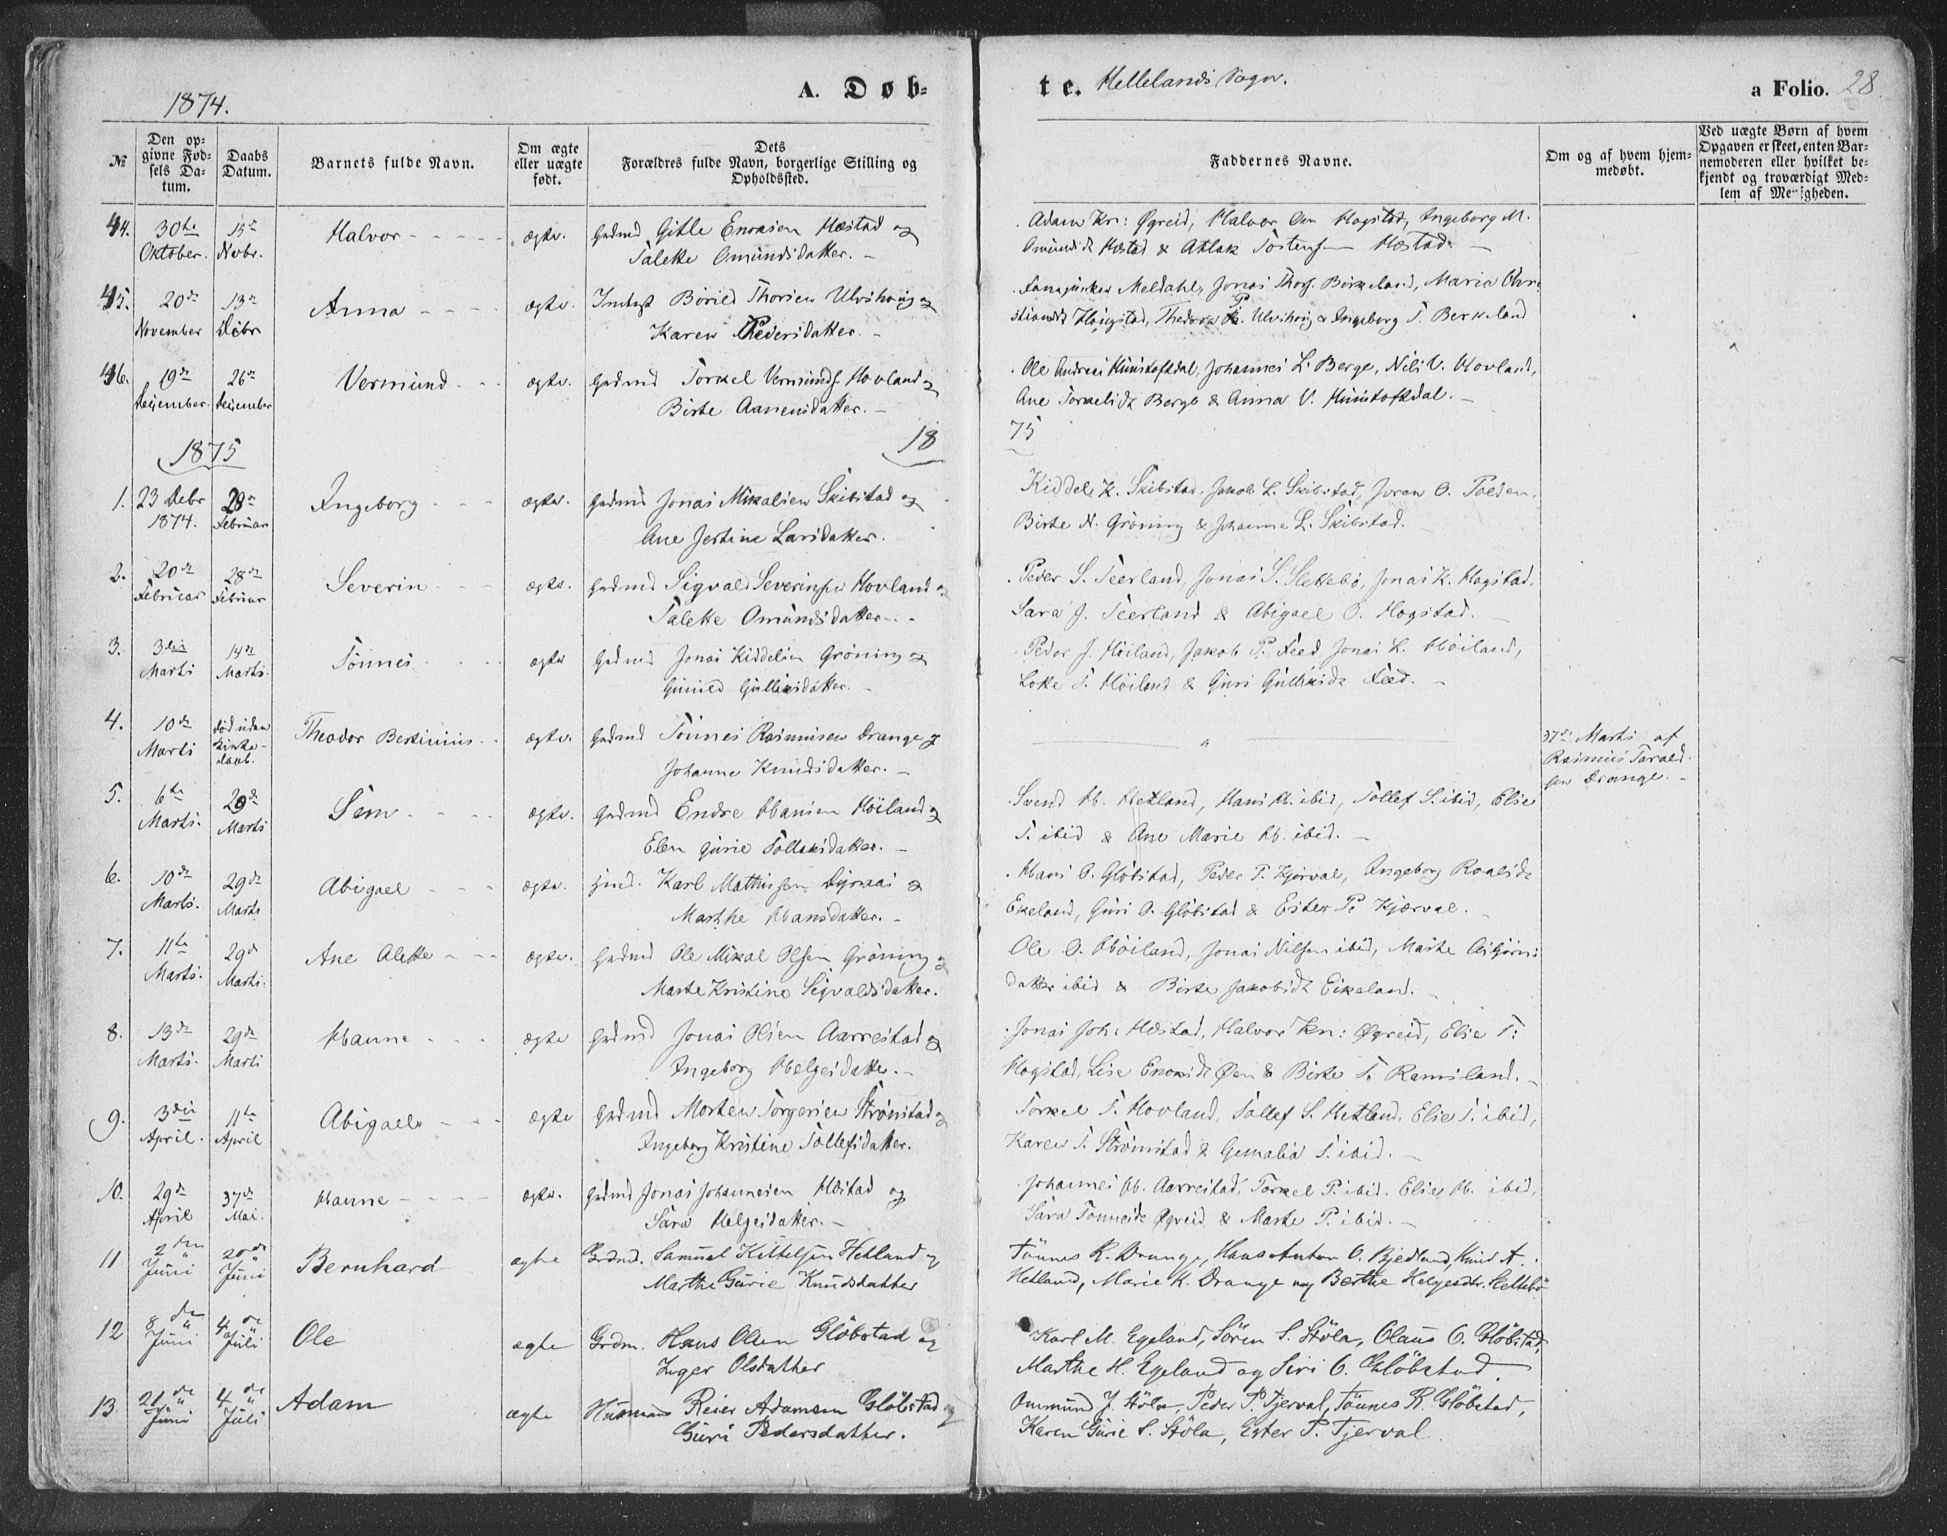 1874.
A. Døb-
№
Den opgivne Fødsels Datum.
Daabs Datum.
Barnets fulde Navn.
Om ægte eller uægte født.
Dets Forældres fulde Navn, borgerlige Stilling og Opholdssted.
te. Hellelands Sogn.
a Folio. 28
Faddernes Navne.
Om og af hvem hjemmedøbt.
Ved uægte Børn af hvem Opgaven er skeet, enten Barnemoderen eller hvilket bekjendt og troværdigt Medlem af Menigheden.
44. 30te Oktober. 15de Novbr. Halvor ægte. Gaardmd Gitle Enoksen Hæstad og
Talette Omundsdatter.
Adam Kn: Øgreid, Halvor Hogstad, Ingeborg M.
Omundsd. Hæstad & Atlak Tostensen Hæstad.
45. 20de November 13de Debr Anna ægte. Børild Thorsen Ulvihoug og
Karen Pedersdatter.
Meldahl, Jonas Thors. Birkeland, Marie Chri-
stiansd. Hougstad, Theodor P. Ulvihoug & Ingeborg T. Berkeland
46. 19de December. 26de December Vermund ægte. Gaardmd Torkel Vermunds. Hovland og
Birte Aanensdatter.
Ole Andreas Humstoftdal, Johannes L. Berge, Nils V. Hovland,
Ane Torkelsdt Berge & Anna V. Humstoftdal.
1875
18
75
1. 23 Debr 1874. 28de Februar Ingeborg ægte. Gaardmd Jonas Mikalsen Skibstad og
Ane Jertine Larsdatter.
Kiddel K. Skibstad, Jakob L. Skibstad, Joren O. Tolden,
Birte N. Grøning & Johanne L. Skibstad.
2. 20de Februar 28de Februar Severin ægte. Gaardmd Sigvald Severinsen Hovland og
Talette Omundsdatter.
Peder S. Teerland, Jonas S. Slettebø, Jonas K. Hogstad,
Sara J. Teerland & Abigael O. Hogstad.
3. 3die Marts 14de Marts. Tønnes ægte Gaardmd Jonas Kiddelsen Grøning og
Gunild Gulliksdatter.
Peder J. Høiland, Jakob P. Feed, Jonas L. Høiland,
Lotte T. Høiland & Guri Gulliksdt Feed.
4. 10de Marts død uden Kirke-daab. Theodor Bertinius ægte. Gaardmd Tønnes Rasmusen Drange og
Johanne Knudsdatter.
"
Marts af
Rasmus Tarald-
sen Drange.
5. 6te Marts. 29de Marts Sem ægte. Gaardmd Endre Hansen Høiland og
Elen Gurie Tollaksdatter.
Svend H. Hetland, Hans H. ibid, Tollef S. ibid, Elie
T. ibid & Ane Marie H. ibid.
6. 10de Marts. 29de Marts Abigael ægte. Karl Mathiesen og
Marthe Hansdatter.
Hans O. Gløbstad, Peder P. Kjerval, Ingeborg Roalsdt
Ekeland, Guri O. Gløbstad & Ester P. Kjærval.
7. 11te Marts. 29de Marts. Ane Alette ægte. Gaardmd Ole Mikal Olsen Grøning og
Marte Kristine Sigvaldsdatter.
Ole O. Høiland, Jonas Nilsen ibid, Marte Asbjørns-
datter ibid & Birte Jakobsdt Eikeland.
8. 13de Marts. 29de Marts Hanne ægte Gaardmd Jonas Olsen Aarrestad og
Ingeborg Helgesdatter.
Jonas Joh. Hæstad, Halvor Kn: Øgreid, Elie T.
Hogstad, Lise Enoksdt Øen & Birte T. Ramsland.
9. 3die April. 11te April Abigael ægte Gaardmd Morten Torgersen Strømstad og
Ingeborg Kristine Tollefsdatter.
Torkel T. Hovland, Tollef S. Hetland, Elie T. ibid,
Karen T. Strømstad & Gemalia T. ibid.
10. 29de April Mai. Hanne ægte. Gaardmd Jonas Johannesen Hæstad og
Sara Helgesdatter.
Johannes H. Aarrestad, Torkel P. ibid. Elie H. ibid,
Sara Tønnesdt Øgreid & Marte P. ibid.
11 2den Juni 20de Juni Bernhard ægte Grdmd. Samuel Kittelsen Hetland og
Marthe Gurie Knudsdatter
Tønnes R. Drange, Hans Anton O. Bjedland, Knud A.
Hetland, Marie K. Drange og Berthe Helgesdtr. Slettebø
12 8de Juni 4de Juli Ole ægte Grdm. Hans Olsen Gløbstad og
Inger Olsdatter
Karl M. Egeland, Søren S. Støla, Olaus O. Gløbstad,
Marthe H. Egeland og Siri O. Gløbstad.
13. 21de Juni 4de Juli Adam ægte Husmand Reier Adamsen Gløbstad og
Guri Pedersdatter.
Ommund J. Støla, Peder P. Tjerval, Tønnes R. Gløbstad,
Karen Gurie S. Støla, Ester P. Tjerval.